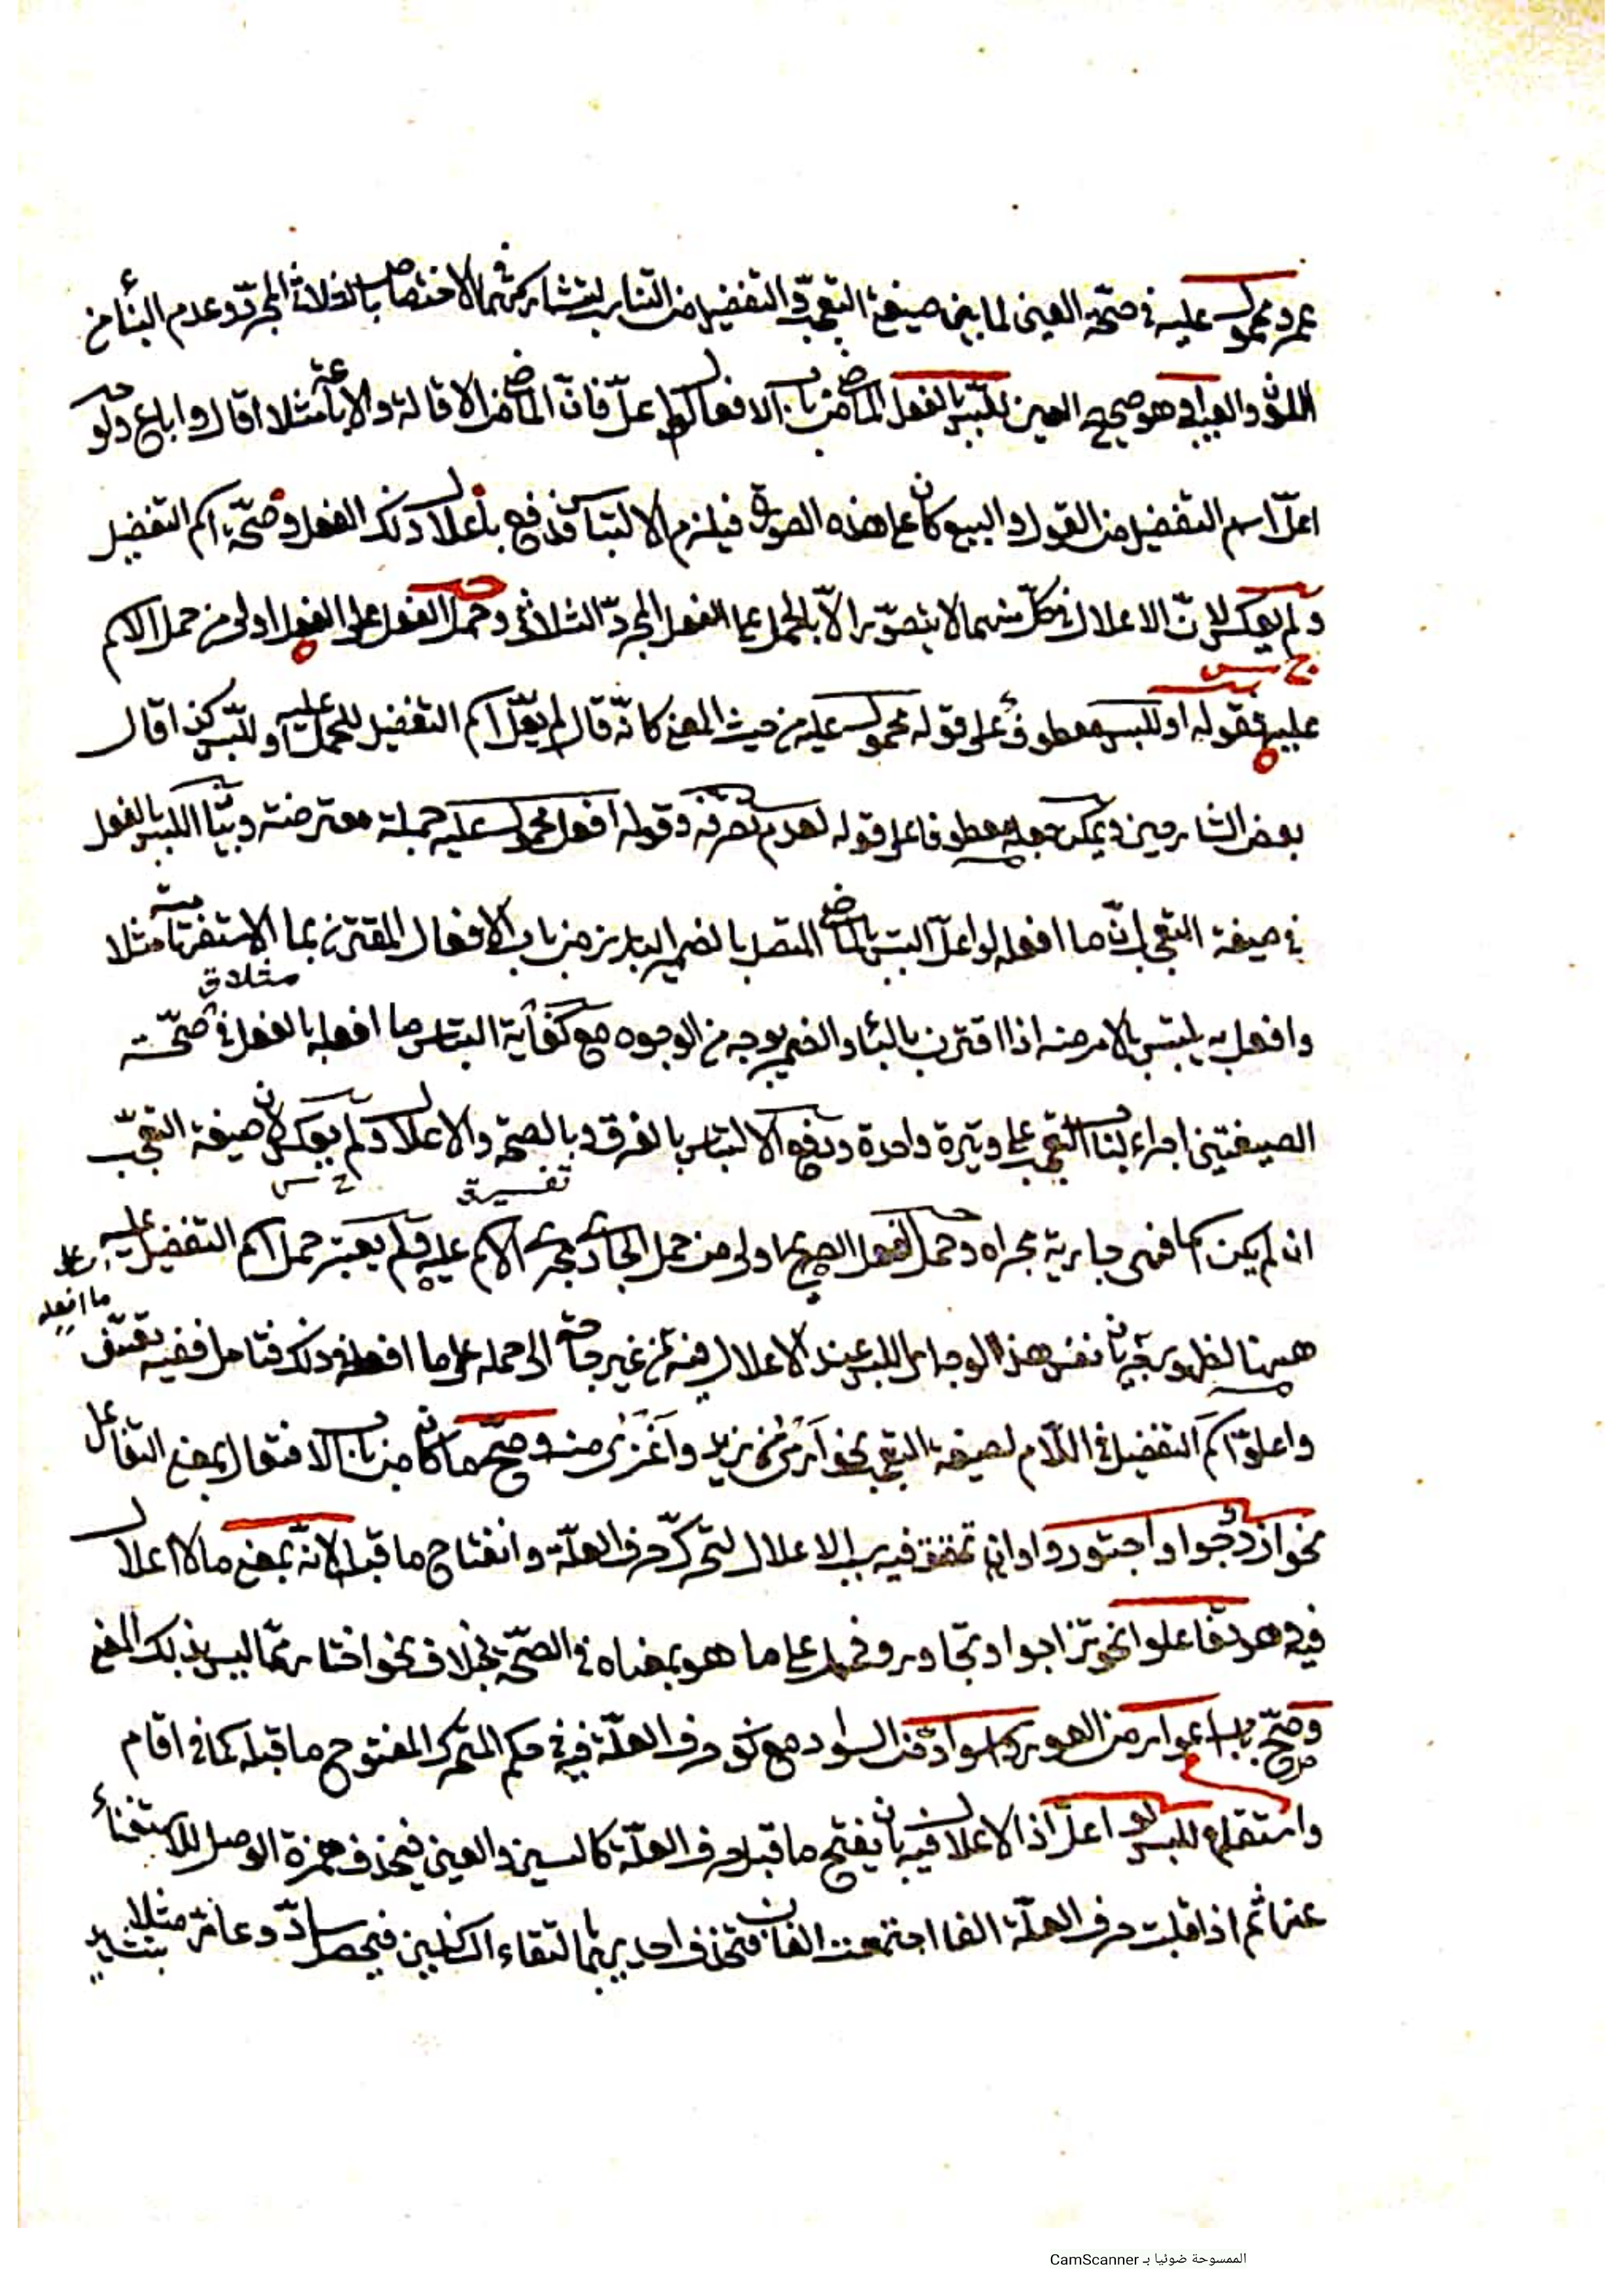 عمرو محمول عليه في صحّة العين لما بين صيغة التعجّب والتفضيل من التناسب لتشاركهما في الاختصاص بالثلاثي المجرّد وعدم البناء من
اللون والعيب وهو صحيح العين للّبس بالفعل الماضي من باب الافعال لو اعلّ فانّ الماضي من الاقالة والاباعة مثلا اقال واباع ولو
اعلّ اسم التفضيل من القول والبيع كان على هذه الصورة فيلزم الالتباس فدفع باعلال ذلك الفعل وصحّة اسم التفضيل
ولم يعكس لانّ الاعلال في كلّ منهما لا يتصوّر الاّ بالحمل على الفعل المجرّد الثلاثي وحمل الفعل على الفعل اولى من حمل الاسم
عليه فقوله او للبس معطوف على قوله محمول عليه من حيث المعنى كانّه قال لم يعلّ اسم التفضيل للحمل عليه او للّبس كذا قال
بعض الشارحين ويمكن جعله معطوفا على قوله لعدم تصرّفه وقوله افعل محمول عليه جملة معترضة وبيان اللبس بالفعل
في صيغة التعجب انّ ما افعله لو اعلّ التبس بالماضي المتصل بالضمير البارز من باب الافعال المقترن بما الاستفهامية مثلا
وافعل به يلتبس بالامر منه اذا اقترن بالباء والضمير بوجه من الوجوه مع كفاية التباس ما افعله بالفعل في صحّة
مثلا ق
الصيغتين اجراء لبناء التعجب على وتيرة واحدة ودفع الالتباس بالفرق وبالصحّة والاعلال ولم يعكس لان صيغة التعجّب
تفسيرية
ان لم يكن اسما فهى جارية مجراه وحمل الفعل الصريح اولى من حمل الجاري مجرى الاسم عليه ولم يعتبر حمل اسم التفضيل عليه على
ما افعله
ههنا لظهور نفس هذا الوجه اللبس عند الاعلال فيه من غير حاجة الى حمله على ما افعله وذلك فتامل ففيه تعسّف
واعلوّ اسم التفضيل في اللّام لصيغة التعجب نحو اَرْمَى من زيد واَغْزَى منه وصحّ ما كان من باب الافتعال بمعنى التفاعل
نحو ازدوجوا واجتوروا وان تحقق فيه سبب الاعلال لتحرّك حرف العلّة وانفتاح ما قبله لانّه بمعنى ما لا اعلال
فيه وهو تفاعلوا نحو تزاوجوا وتجاوروا فحمل على ما هو بمعناه في الصحّة بخلاف نحو اختار ممّا ليس بذلك المعنى
وصحّ باب اعوار من العور واسوادّ من السواد مع كون حرف العلّة فيه في حكم المتحرك المفتوح ما قبله كما في اقام
واستقام للبس لو اعلّ اذ الاعلال فيه بان يفتح ما قبل حرف العلّة كالسين والعين فيحذف همزة الوصل للاستغناء
عنها ثم اذا قلبت حرف العلّة الفا اجتمعت الفان فتحذف احديهما لالتقاء الساكنين فيحصل سادّ وعارّ مثلا بتشديد
الممسوحة ضوئيا بـ CamScanner